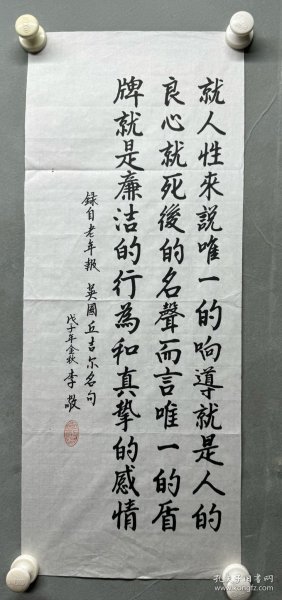 就人性來說唯一的响導就是人的
良心就死後的名聲而言唯一的盾
牌就是廉洁的行為和真挚的感情
錄自老年报 英國丘吉尔名句
戊子年金秋 李敬
孔夫子旧书网
www.kongfz.com